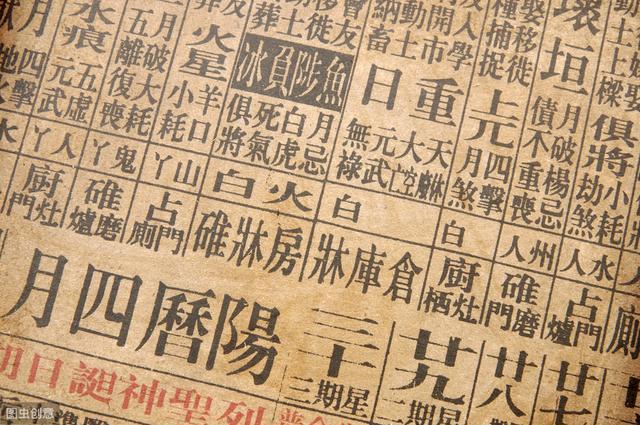 小耗
劫煞
俱將
水人
占門
爐
廿七
壞垣
月破楊忌
債不重喪
州人
碓磨
門
廿八
娶移徙
種捕捉
上元
四擊
月煞
白
廚灶
栖
廿九
二期星
人學
開市
動土
納畜
重日
大空
元武
無祿
白
倉庫牀
三十
三期星
魚陟負冰
月忌
白虎
死氣
俱將
火白
房牀碓
火星
羊口
小耗
山丫
占門
廁
月破大耗
五離復喪
鬼丫
碓磨
爐
水痕
五虛
元武
人丫
廚灶
門
四擊
陽曆四月
列聖神誕日期
图虫创意